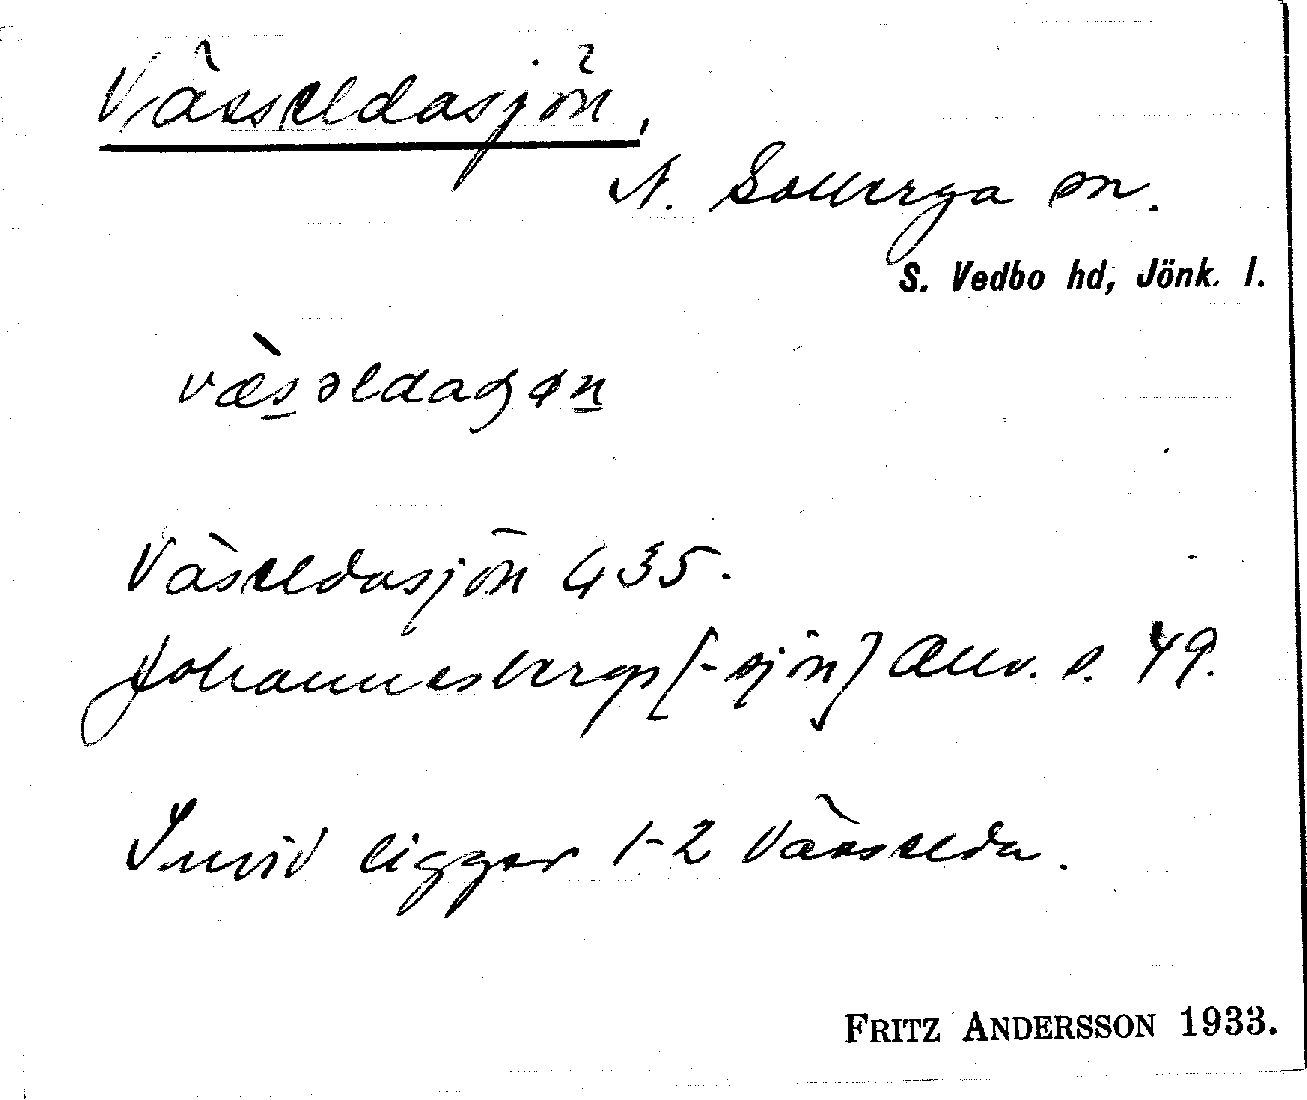 Värseldasjön,
N. Solberga sn.
S. Vedbo hd, Jönk. l.
væ̀s̲əldaʂøn̲
Väseldasjön 435.
Johannesbergs[-sjön] Allv. s. 49.
Invid ligger 1-2 Värselda.
FRITZ ANDERSSON 1933.